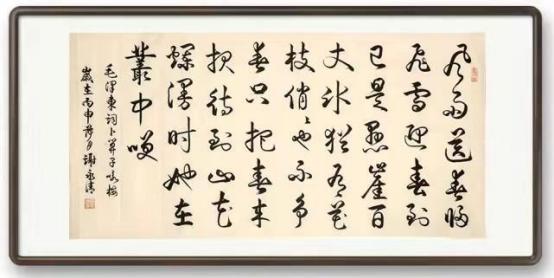 风雨送春归
飛雪迎春到
已是悬崖百
丈冰猶有花
枝俏也不争
春只把春来
报待到山花
爛漫时她在
叢中咲
毛澤東词卜算子咏梅
歲在丙申 月 謝永清